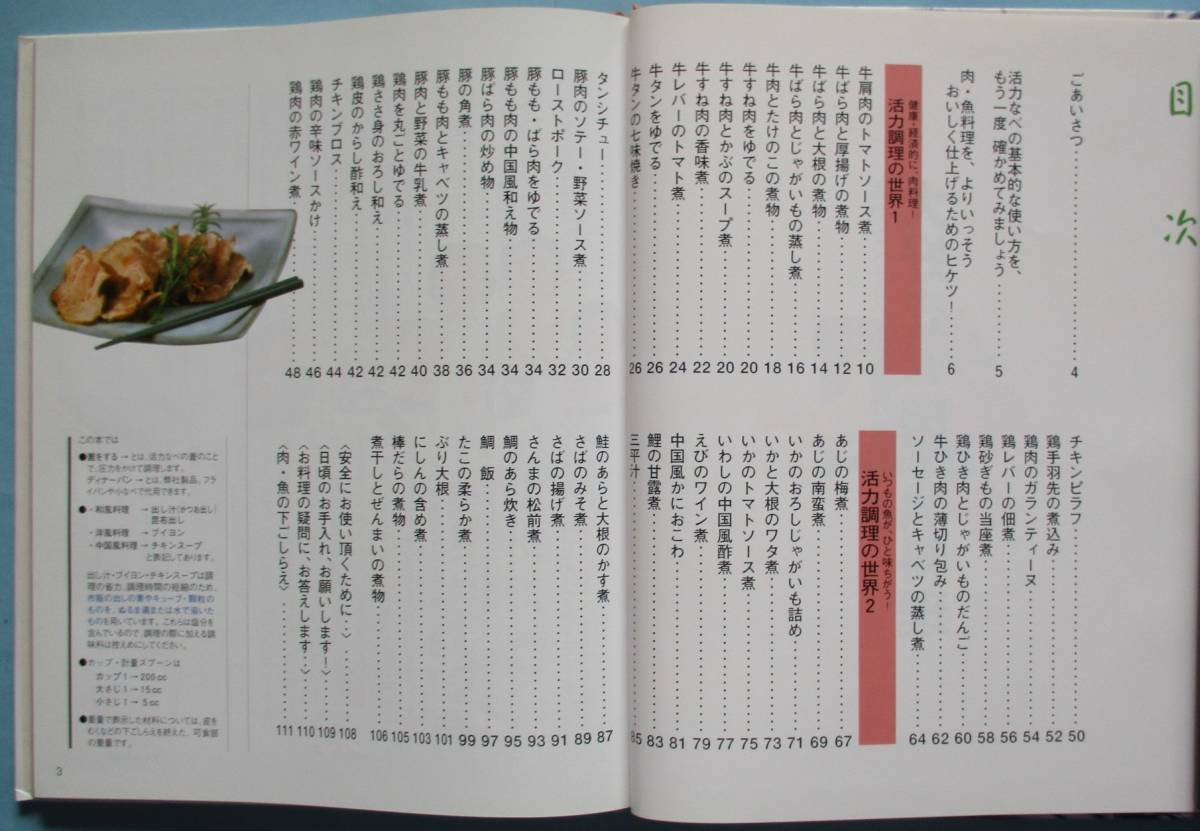 目次
ごあいさつ……………4
活力なべの基本的な使い方を、
もう一度 確かめてみましょう……5
肉・魚料理を、よりいっそう
おいしく仕上げるためのヒケツ!……6
健康・経済的に、肉料理!
活力調理の世界1
牛肩肉のトマトソース煮……10
牛ばら肉と厚揚げの煮物……12
牛ばら肉と大根の煮物……14
牛ばら肉とじゃがいもの蒸し煮……16
牛肉とたけのこの煮物……18
牛すね肉をゆでる……20
牛すね肉とかぶのスープ煮……20
牛すね肉の香味煮……22
牛レバーのトマト煮……24
牛タンをゆでる……26
牛タンの七味焼き……26
タンシチュー……28
豚肉のソテー・野菜ソース煮……30
ローストポーク……32
豚もも・ばら肉をゆでる……34
豚もも肉の中国風和え物……34
豚ばら肉の炒め物……34
豚の角煮……36
豚もも肉とキャベツの蒸し煮……38
豚肉と野菜の牛乳煮……40
鶏肉を丸ごとゆでる……42
鶏ささ身のおろし和え……42
鶏皮のからし酢和え……42
チキンブロス……44
鶏肉の辛味ソースかけ……46
鶏肉の赤ワイン煮……48
チキンピラフ……50
鶏手羽先の煮込み……52
鶏肉のガランティーヌ……54
鶏レバーの佃煮……56
鶏砂ぎもの当座煮……58
鶏ひき肉とじゃがいものだんご……60
牛ひき肉の薄切り包み……62
ソーセージとキャベツの蒸し煮……64
いつもの魚が、ひと味ちがう!
活力調理の世界2
あじの梅煮……67
あじの南蛮煮……69
いかのおろしじゃがいも詰め……71
いかと大根のワタ煮……73
いかのトマトソース煮……75
いわしの中国風酢煮……77
えびのワイン煮……79
中国風かにおこわ……81
鯉の甘露煮……83
三平汁……85
鮭のあらと大根のかす煮……87
さばのみそ煮……89
さばの揚げ煮……91
さんまの松前煮……93
鯛のあら炊き……95
鯛飯……97
たこの柔らか煮……99
ぶり大根……101
にしんの含め煮……103
棒だらの煮物……105
煮干しとぜんまいの煮物……106
〈安全にお使い頂くために…〉……108
〈日頃のお手入れ、お願いします!〉……109
〈お料理の疑問に、お答えします…〉……110
〈肉・魚の下ごしらえ〉……111
この本では
●蓋をする→とは、活力なべの蓋のこと
で、圧力をかけて調理します。
ディナーパン→とは、弊社製品。フラ
イパンや小なべで代用できます。
●・和風料理 →出し汁(かつお出し)
昆布出し
・洋風料理 →ブイヨン
・中国風料理→チキンスープ
と表記してあります。
出し汁・ブイヨン・チキンスープは調
理の省力、調理時間の短縮のため、
市販の出しの素やキューブ・顆粒の
ものを、ぬるま湯または水で溶いた
ものを用いています。これらは塩分を
含んでいるので、調理の際に加える調
味料は控えめにしてください。
●カップ・計量スプーンは
カップ1→200cc
大さじ1→15cc
小さじ1→5cc
●重量で表示した材料については、皮を
むくなどの下ごしらえを終えた、可食部
の重量です。
3